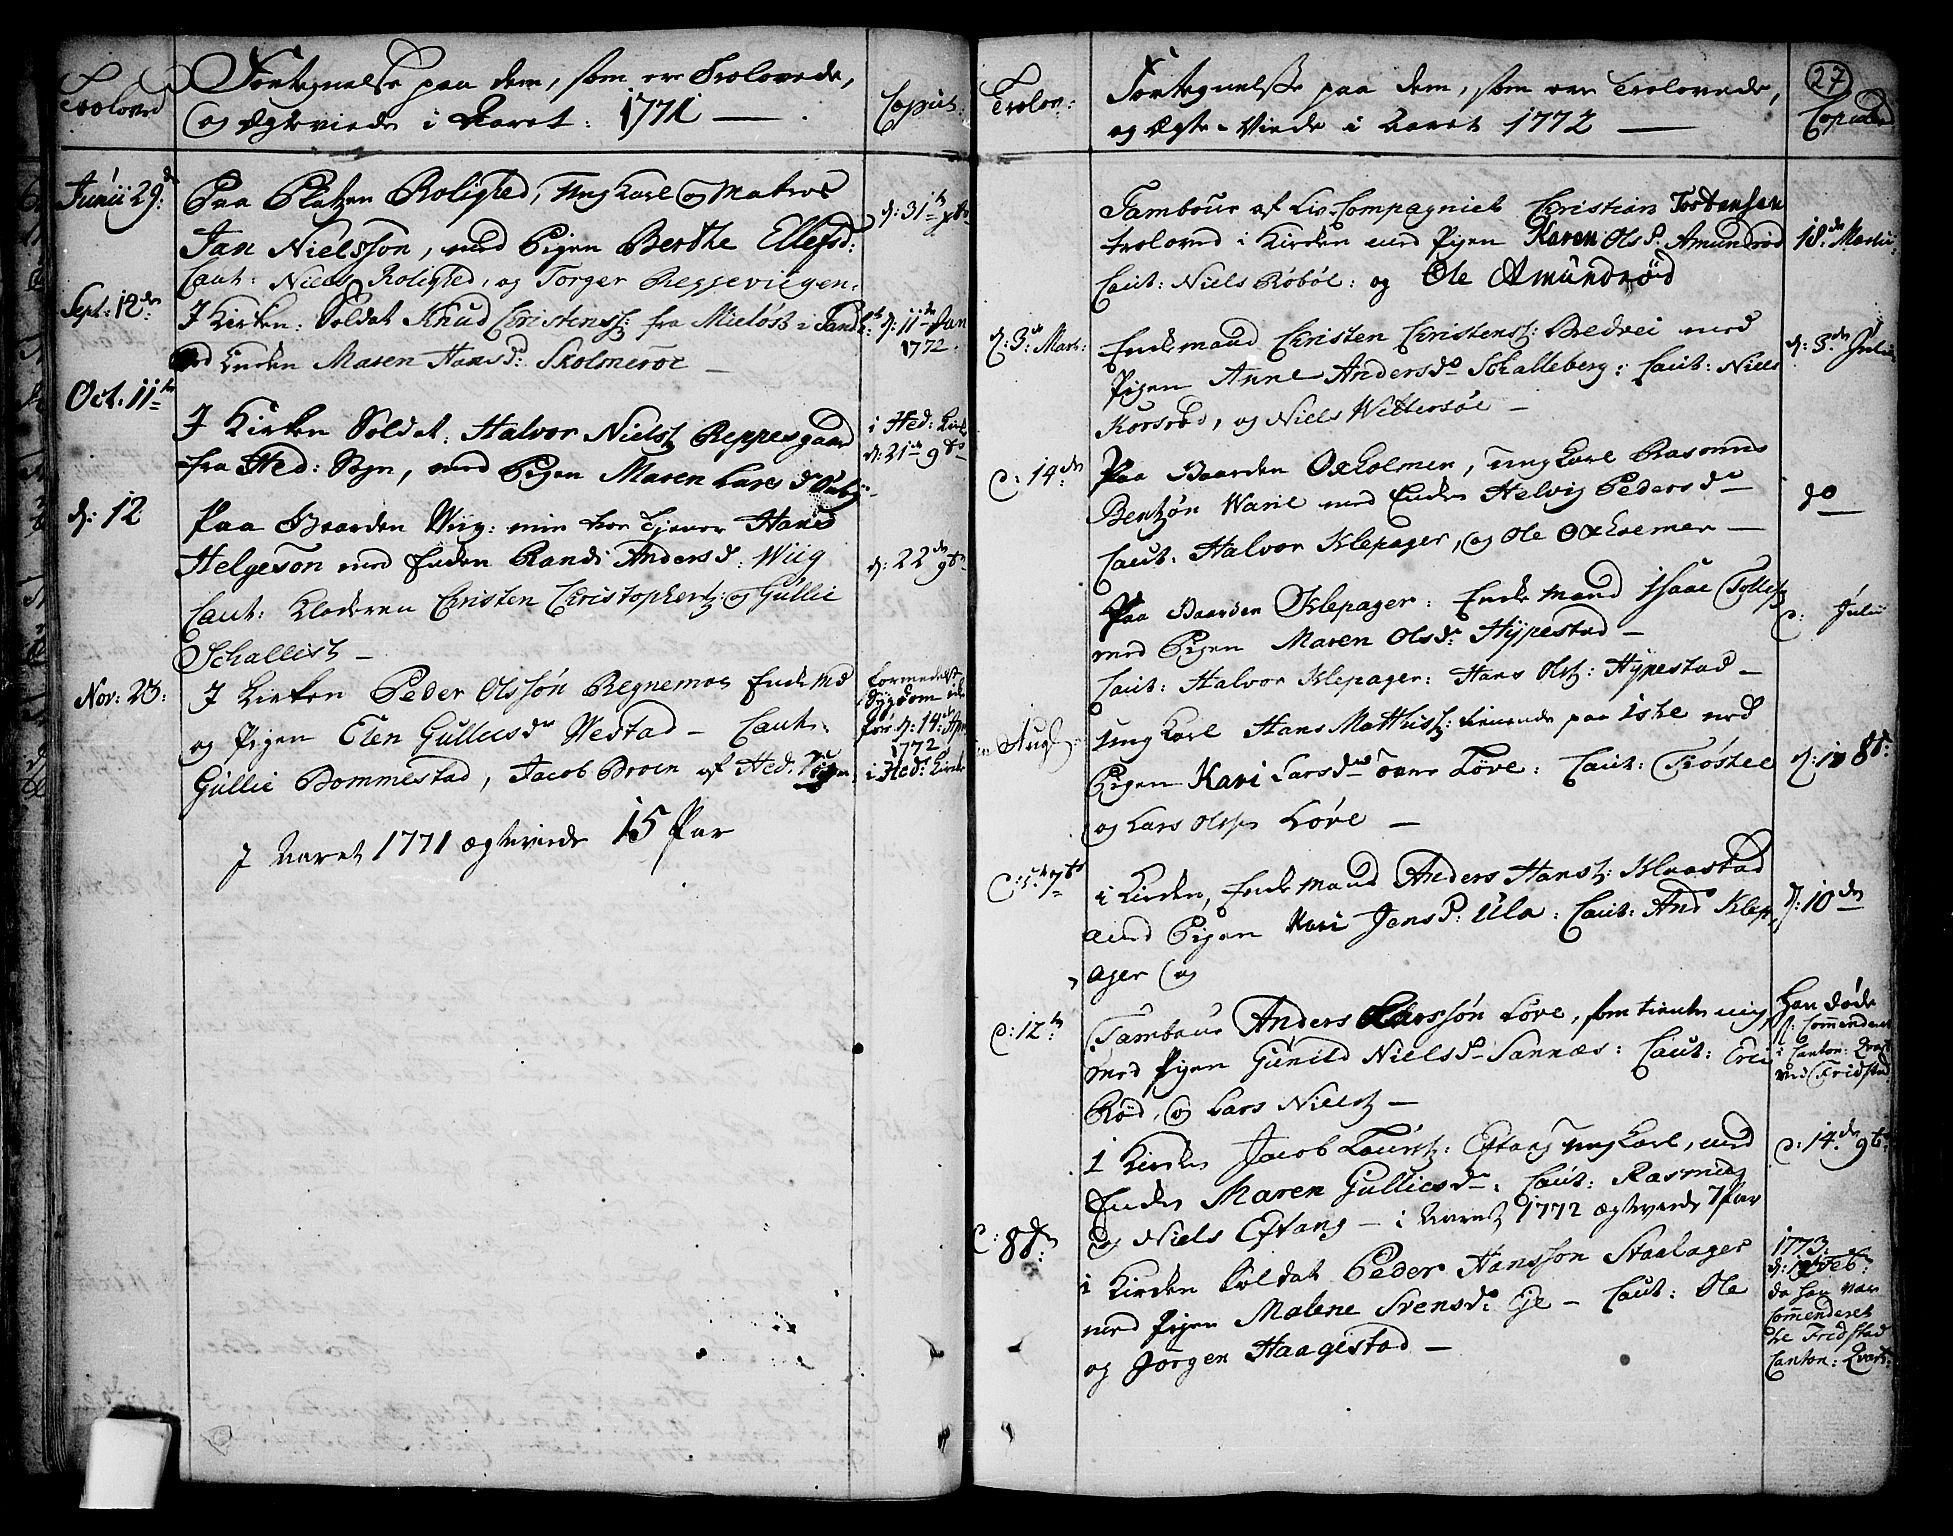 Troloved
Fortegnelse paa dem, som ere Trolovede,
og Ægteviede i Aaret: 1771 —
Copul:
Junii 29de
Paa Platzen Rolighed, Ung Karl og Matros
Jan Nielssøn, med Pigen Berthe Ellefsd:
Caut: Niels Rolighed, og Torger
d: 31te
Sept: 12de
J Kirken: Soldat Knud Christens: fra i
Enken Maren Hansd: Skolmerøe —
d: 11te Jan
1772.
Oct: 11te
J Kirken Soldat: Halvor Niels Reppesgaard
fra Hed: Sogn, med Pigen Maren Larsd
i Hed: Kirk
d: 21de 9br
d: 12
Paa Gaarden Wiig: min Tjener Hans
Helgesøn med Enken Randi Andersd: Wiig
Caut: Christen Christophers: og Gullic
Schallist —
d: 22de 9br
Nov: 23:
J Kirken Peder Olssøn Regnemoe Enke Md
og Pigen Elen Gulliesdr Westad — Caut:
Gullie Bommestad, Jacob Broen af Hed: Sogn
formedelst
Sygdom
før d: 14de
1772
i Hed: Kirke
J Aaret 1771 ægteviede 15 Par
27
Trolov:
Fortegnelse paa dem, som ere Trolovede,
og Ægte-Viede i Aaret 1772 —
Copuleret
Tambour af Liv-Compagniet Christian Tostensen
troloved i Kirken med Pigen Karen Olsd: Amundrød
Caut: Niels Røbøl: og Ole Amundrød
18de Martii
d: 3de Mart:
Enkemand Christen Christens: Bredvei med
Pigen Anne Andersdr Schalleberg: Caut: Niels
Korsrød, og Niels Wettersøe —
d: 3de Julii
d: 14de
Paa Gaarden Oxholmen, Ung Karl Rasmus
Bentzøn Waril med Enken Helvig Pedersdr
Caut: Halvor Klepager, og Ole Oxholmen —
do
Paa Gaarden Klepager: Enke Mand Isaac Tollefs
med Pigen Maren Olsdr Hypestad —
Caut: Halvor Klepager: Hans Ols: Hypestad —
d: Julii
Aug:
Ung Karl Hans Matthis: tienende paa Iske med
Pigen Kari Larsd Løve: Caut:
og Lars Olss Løve —
d: 8br
d: 5te 7br
i Kirken, Enke Mand Anders Hans: Klaastad
med Pigen Kari Jensd: Ula: Caut: And Klep-
ager og
d: 10de
d: 12te
Tambour Anders Larssøn Løve, som tiente mig
med Pigen Gunild Nielsdr Sannæs: Caut: Eric
Rød, og Lars Niels —
Han døde
Commenderet
i Canton: Qvart
ved Fridstad
i Kirken Jacob Lauritz: Eftang Ung Karl, med
Enken Maren Gulliesdr: Caut: Rasmus
og Niels Eftang — i Aaret 1772 ægteviede 7 Par
d: 14de 9br
d: 8br:
i Kirken Soldat Peder Hanssøn Staalager
med Pigen Malene Svensdr: Eje — Caut: Ole
og Jørgen Haagestad —
1773:
Feb:
da han var
Commenderet
til Fridstad
Canton: Qvart: